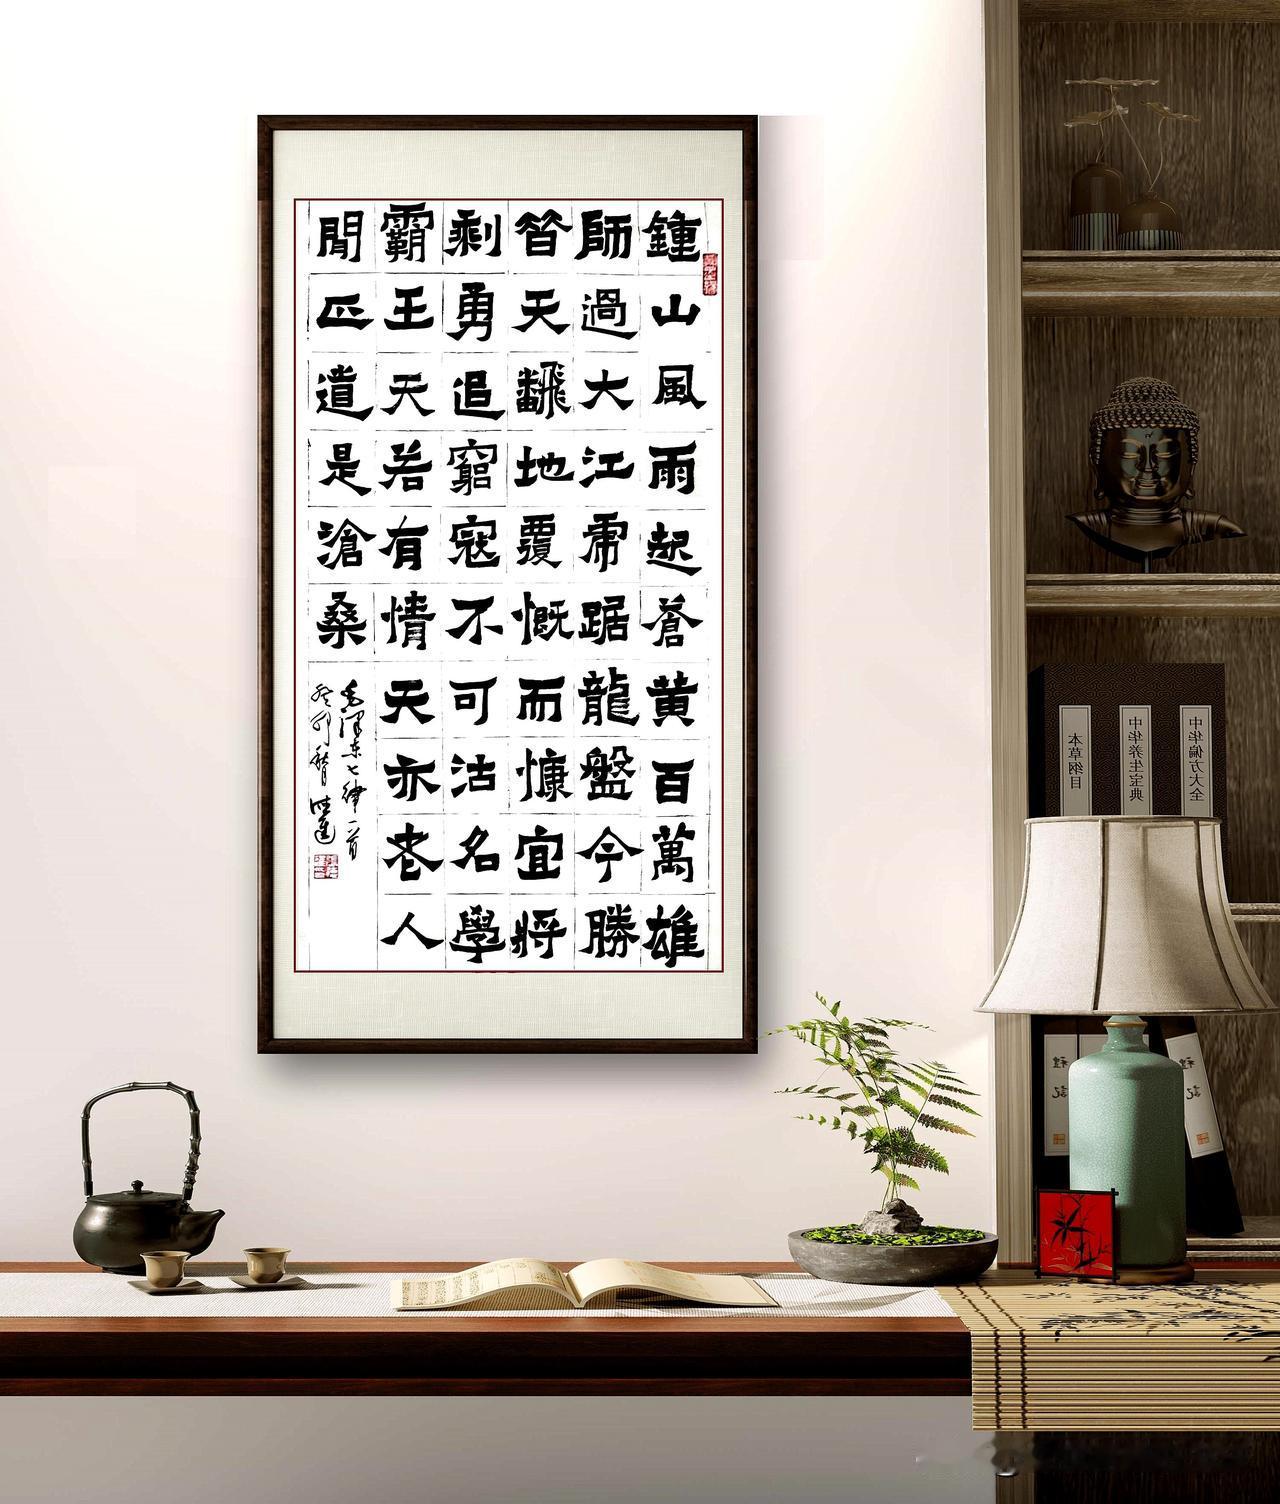 鍾山風雨起蒼黃百萬雄
師過大江虎踞龍盤今勝
昔天飜地覆慨而慷宜將
剩勇追窮寇不可沽名學
霸王天若有情天亦老人
閒正道是滄桑
毛澤东七律一首
癸卯秋月
中华偏方大全
中华养生宝典
本草纲目